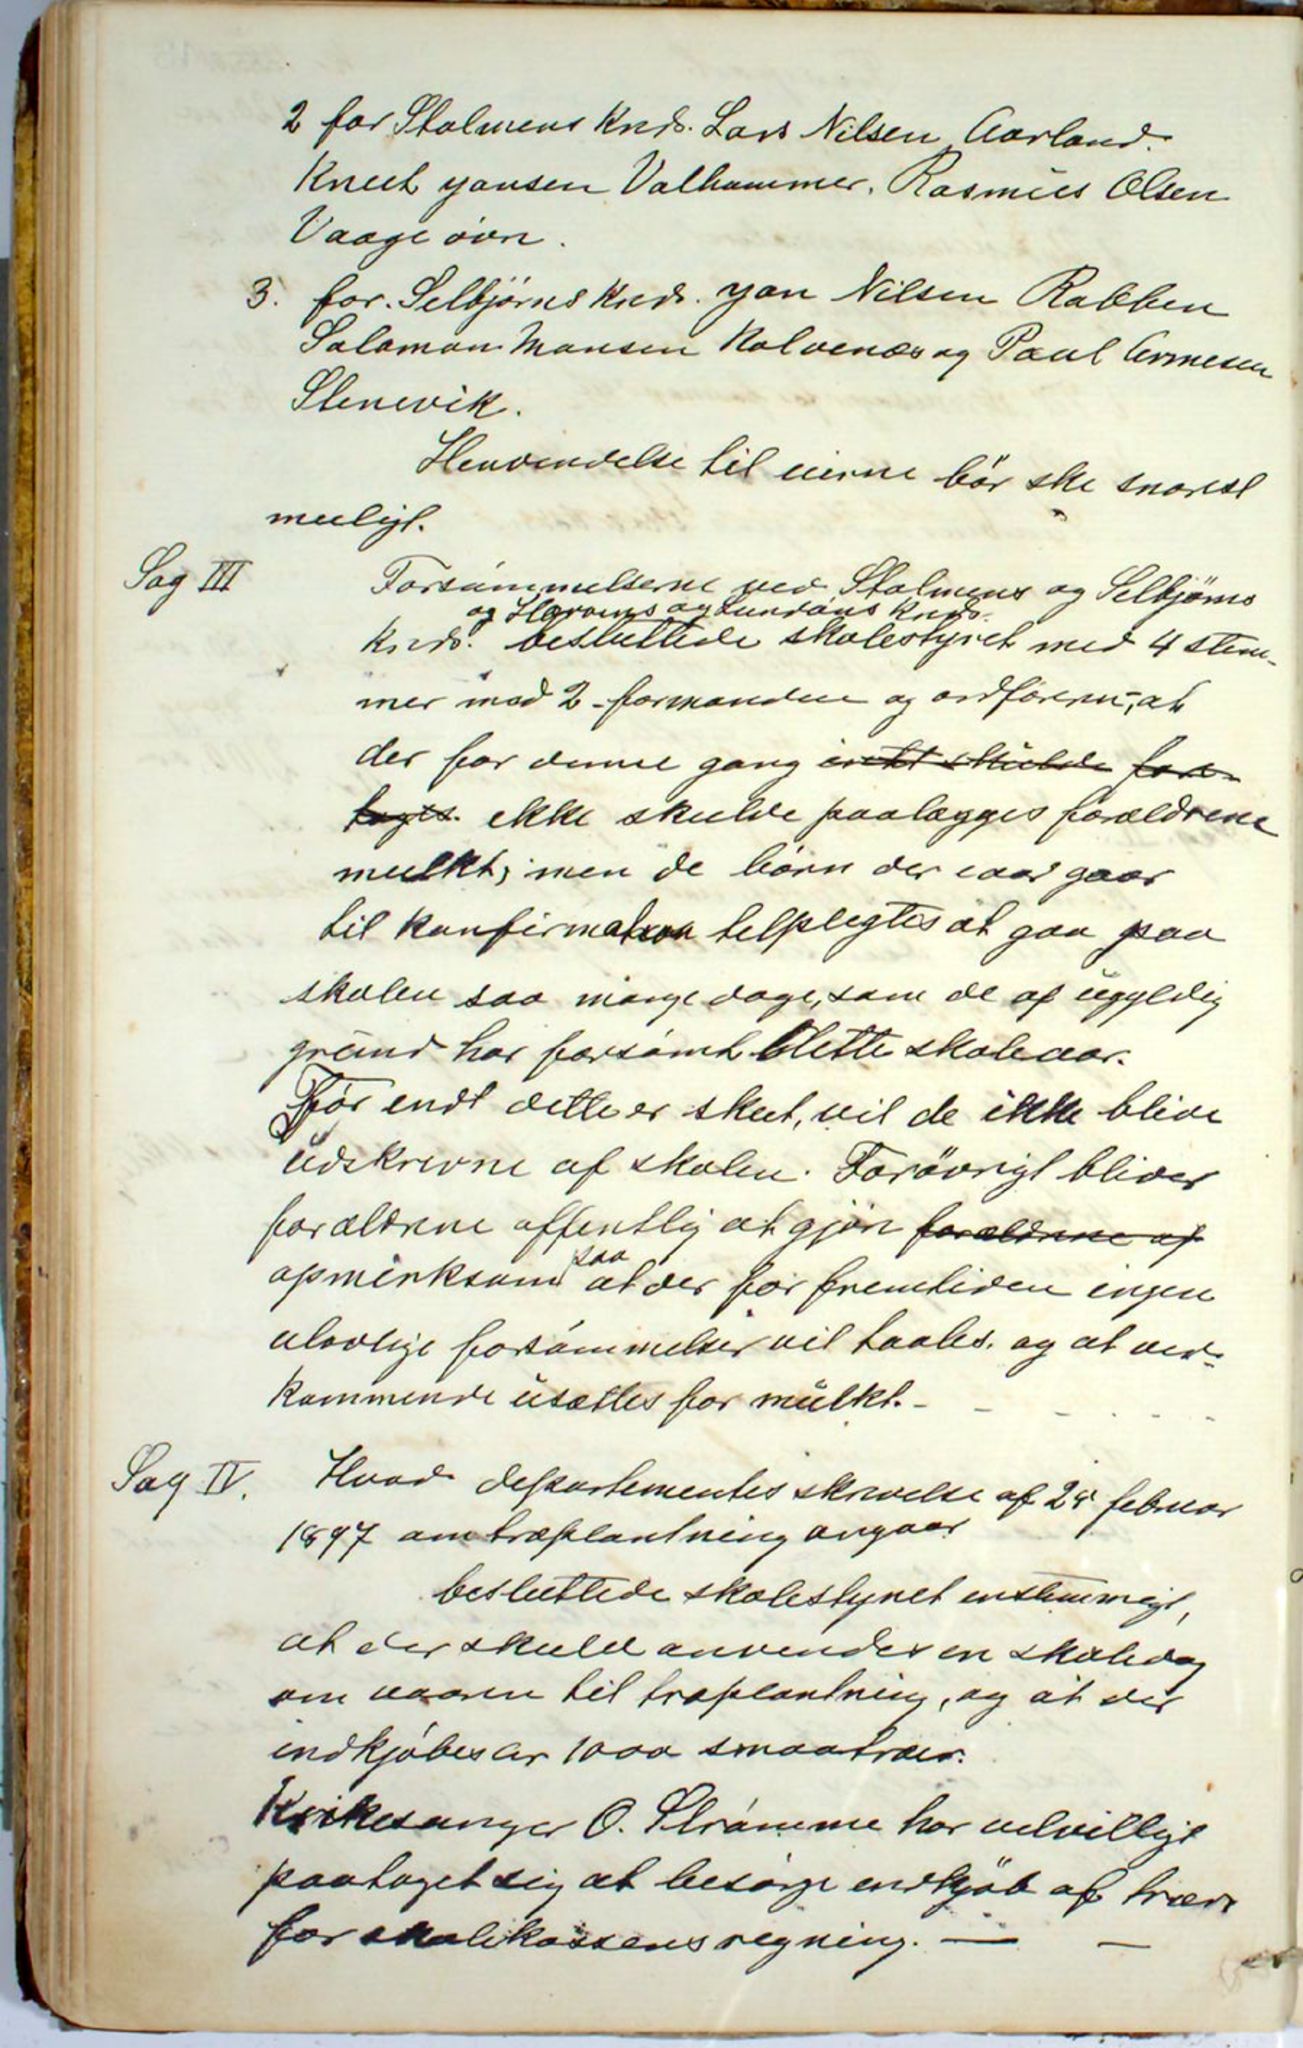 2 for Stolmens Knds. Lars Nilsen Aarland.
Knut Jansen Valhammer. Rasmus Olsen
Vaage övn.
3. for Selbjørns Knds. Jan Nilsen Rabben
Salamon Monsen Kolvenæs og Paul Armesen
Stenevik.
Henvendelse til eierne bör ske snarest
muligt.
Sag III Forsömmelserne ved Stolmens og Selbjörns
og Hevröens og Sundöens Knds.
Knds. besluttede skolestyret med 4 stem-
mer mod 2 - formanden og ordføreren -, at
der for denne gang intet skulde fore-
tages ekke skulde paalægges forældrene
mulkt; men de börn der iaar gaar
til konfirmation telpligtes at gaa paa
skolen saa mange dage, som de af ugyldig
grund har forsömt dette skoleaar.
För endt dette er skeet, vil de ikke blive
udskrevne af skolen. Forövrigt bliver
forældrene offentlig at gjöre forældrene op
opmerksom paa at der for fremtiden ingen
ulovlige forsömmelser vil taales. og at ved-
kommende usættes for mulkt. -
Sag IV. Hvad departementes skrivelse af 25 februar
1897 om træplantning angaar
besluttede skolestyret enstemmigt,
at der skulde anvendes en skoledag
om vaaren til træplantning, og at der
indkjöbes ca 1000 smaatrær.
Kirkesanger O. Strömme har velvilligt
paataget sig at besörge endkjöb af trær
for skolekassens regning. — —